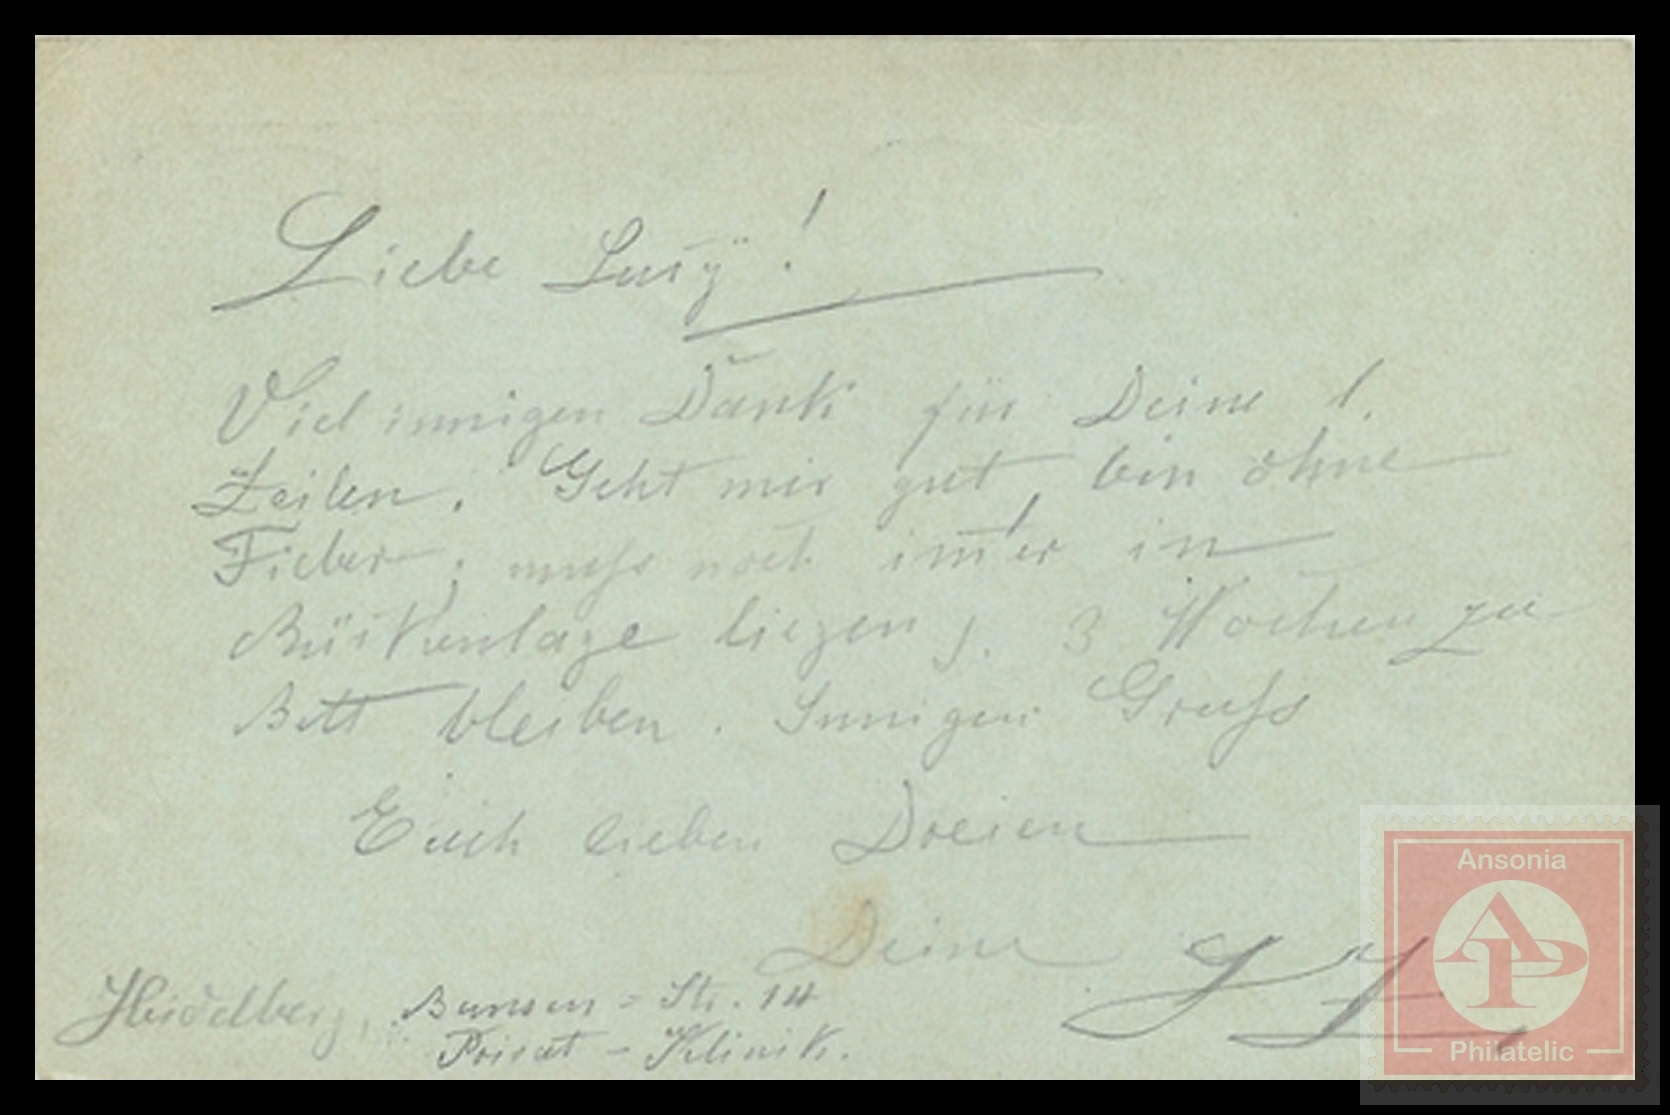 Liebe Lucÿ!
Viel innigen Dank für Deine l.
Zeilen. Geht mir gut, bin ohne
Fieber; muss noch im̅er in
Rückenlage liegen, 3 Wochen zu
Bett bleiben. Innigen Gruss
Euch lieben Dreien
Deine
Heidelberg, Bunsen-Str. 14
Privat-Klinik.
Ansonia
AP
Philatelic